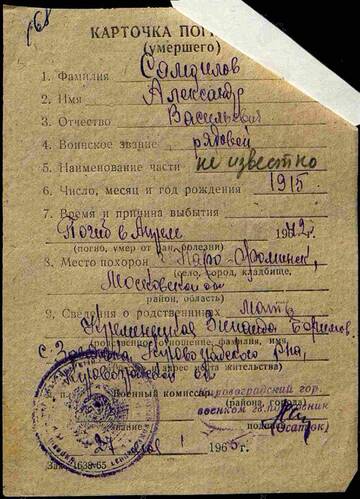 168
КАРТОЧКА ПОГ
(умершего)
1. Фамилия Самойлов
2. Имя Александр
3. Отчество Васильевич
4. Воинское звание рядовой
5. Наименование части не известно
6. Число, месяц и год рождения 1915
7. Время и причина выбытия
Погиб в Апреле 1942 г.
(погиб, умер от ран, болезни)
8. Место похорон Наро-Фоминск,
(село, город, кладбище,
Московской обл
район, область)
9. Сведения о родственниках мать
Кременецкая Зинаида
родственное отношение, фамилия, имя,
с. Кировоградского р-на,
адрес места жительства)
Кировоградской обл
Военный комиссар Кировоградский гор.
(района, города)
военком гв. полковник
(Осаток)
27 196 г.
Зак. 1638-65